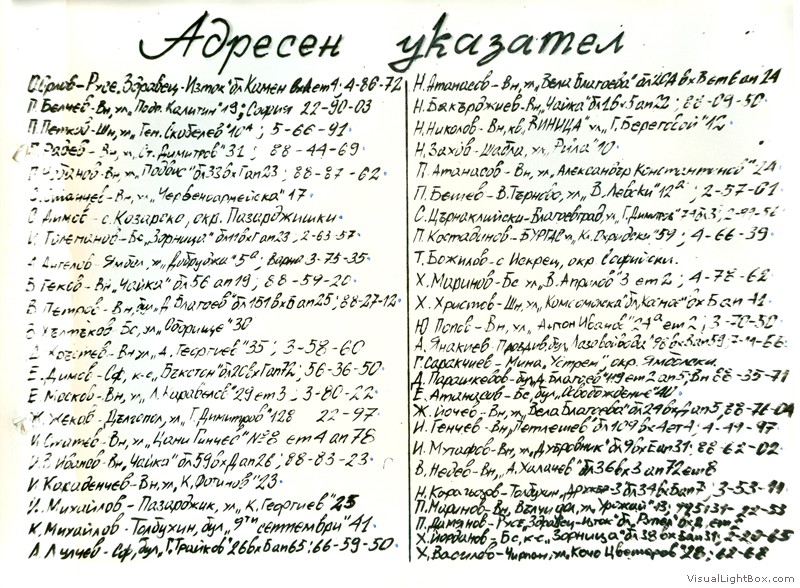 Адресен указател
О. Орлов - Русе, Здравец-Изток" бл. Камен вх A ет 4; 4-86-72
П. Белчев - Вн, ул. "Подп. Калитин" 19; София 22-90-03
П. Петков - Шн, ул. "Ген. Скобелев" 10А; 5-66-91
Радев - Вн, ул. "Ст. Димитров" 31; 88-44-69
бл 33 вх Г ап 23; 88-87-62
Станчев - Вн, ул. "Червеноармейска" 17
С. Димов - с. Козарско, окр. Пазарджишки
И. Големанов - Бс, "Зорница" бл 11 вх Г ап 23; 2-63-57
Ангелов - Ямбол, ж. "Добруджа" 5а; Варна 3-75-35
Б. Геков - Вн, "Чайка" бл 56 ап 19; 88-59-20
В. Петров - Вн, бул. "Д. Благоев" бл 151 вх Б ап 25; 88-27-12
Хълтъков - Бс, ул. "Оборище" 30
Д. Костев - Вн, ул. "А. Георгиев" 35; 3-58-60
Е. Димов - Сф, к-с "Бъкстон" бл 20 вх Г ап 72; 56-36-50
Е. Москов - Вн, ул. "Л. Каравелов" 29 ет 3; 3-80-22
Ж. Жеков - Дългопол, ул. "Г. Димитров" 128 22-97
И. Статев - Вн, "Цани Гинчев" №8 ет 4 ап 78
Иванов - Вн, "Чайка" бл 59 вх Д ап 26; 88-83-23
И. Кокаденчев - Вн, ул. "К. Фотинов" 23
И. Михайлов - Пазарджик, ул. "К. Георгиев" 25
К. Михайлов - Толбухин, бул. "9ти септември" 41
А. Лулчев - Сф, бул. "Г. Трайков" 26 вх Б ап 65; 66-59-50
Н. Атанасов - Вн, ул. "Бела Благоева" бл 20А вх Б ет 6 ап 24
Н. Бакърджиев - Вн, "Чайка" бл 16 х 5 ап 22; 88-09-50
Н. Николов - Вн, кв. "ВИНИЦА" ул. "Г. Береговой" 12
Н. Захов - Шабла, ул. "Рила" 10
П. Атанасов - Вн, ул. "Александър Константинов" 24
П. Бешев - В. Търново, ул. "В. Левски" 12а; 2-57-01
С. Църнаклийски - Благоевград, ул. "Г. Димитров"
П. Костадинов - БУРГАС ул. "Кл. Охридски" 59; 4-66-39
Т. Божилов - с Искрец, окр. Софийски.
Х. Маринов - Бс ул. "В. Априлов" 3 ет 2; 4-78-62
Х. Христов - Шн, ул. "Комсомолска" бл "Камов" вх Б ап 41
Ю. Попов - Вн, ул. "Антон Иванов" 24а ет 2; 3-70-50
А. Янакиев Пловдив, бул.
Г. Саракчиев - Мина "Устрем", окр. Ямболски.
Д. Парашкевов - бул. Д. Благоев ет 2 ап 5, Вн 88-35-71
Е. Атанасов - Бс, бул. "Освобождение" 40
Ж. Йочев - Вн, ул. "Бела Благоева" бл 29 вх Д ап 5, 88-76-04
И. Генчев - Вн, "Петлешев" бл 109 вх 4 ет 4; 4-41-97
И. Мутафов - Вн, ул. "Дубровник" бл 9 вх Е ап 31; 88-62-02
В. Недев - Вн, "А. Халачев" бл 36 вх 3 ап 72 ет 8
Н. Карагьозов - Толбухин, "Дружба" 3 бл 34 вх Б ап 7; 3-53-99
П. Маринов - Вн, Вълчи дол, ул. "Урожай" 13;
П. Дамянов - Русе, Здравец-Изток, бл.
Х. Йорданов - Бс, к-с "Зорница" бл 38 вх 3 ап 31; 2-20-65
Х. Василев - Чирпан, ул. "Кочо Цветаров" 28; 62-68
VisualLightBox.com